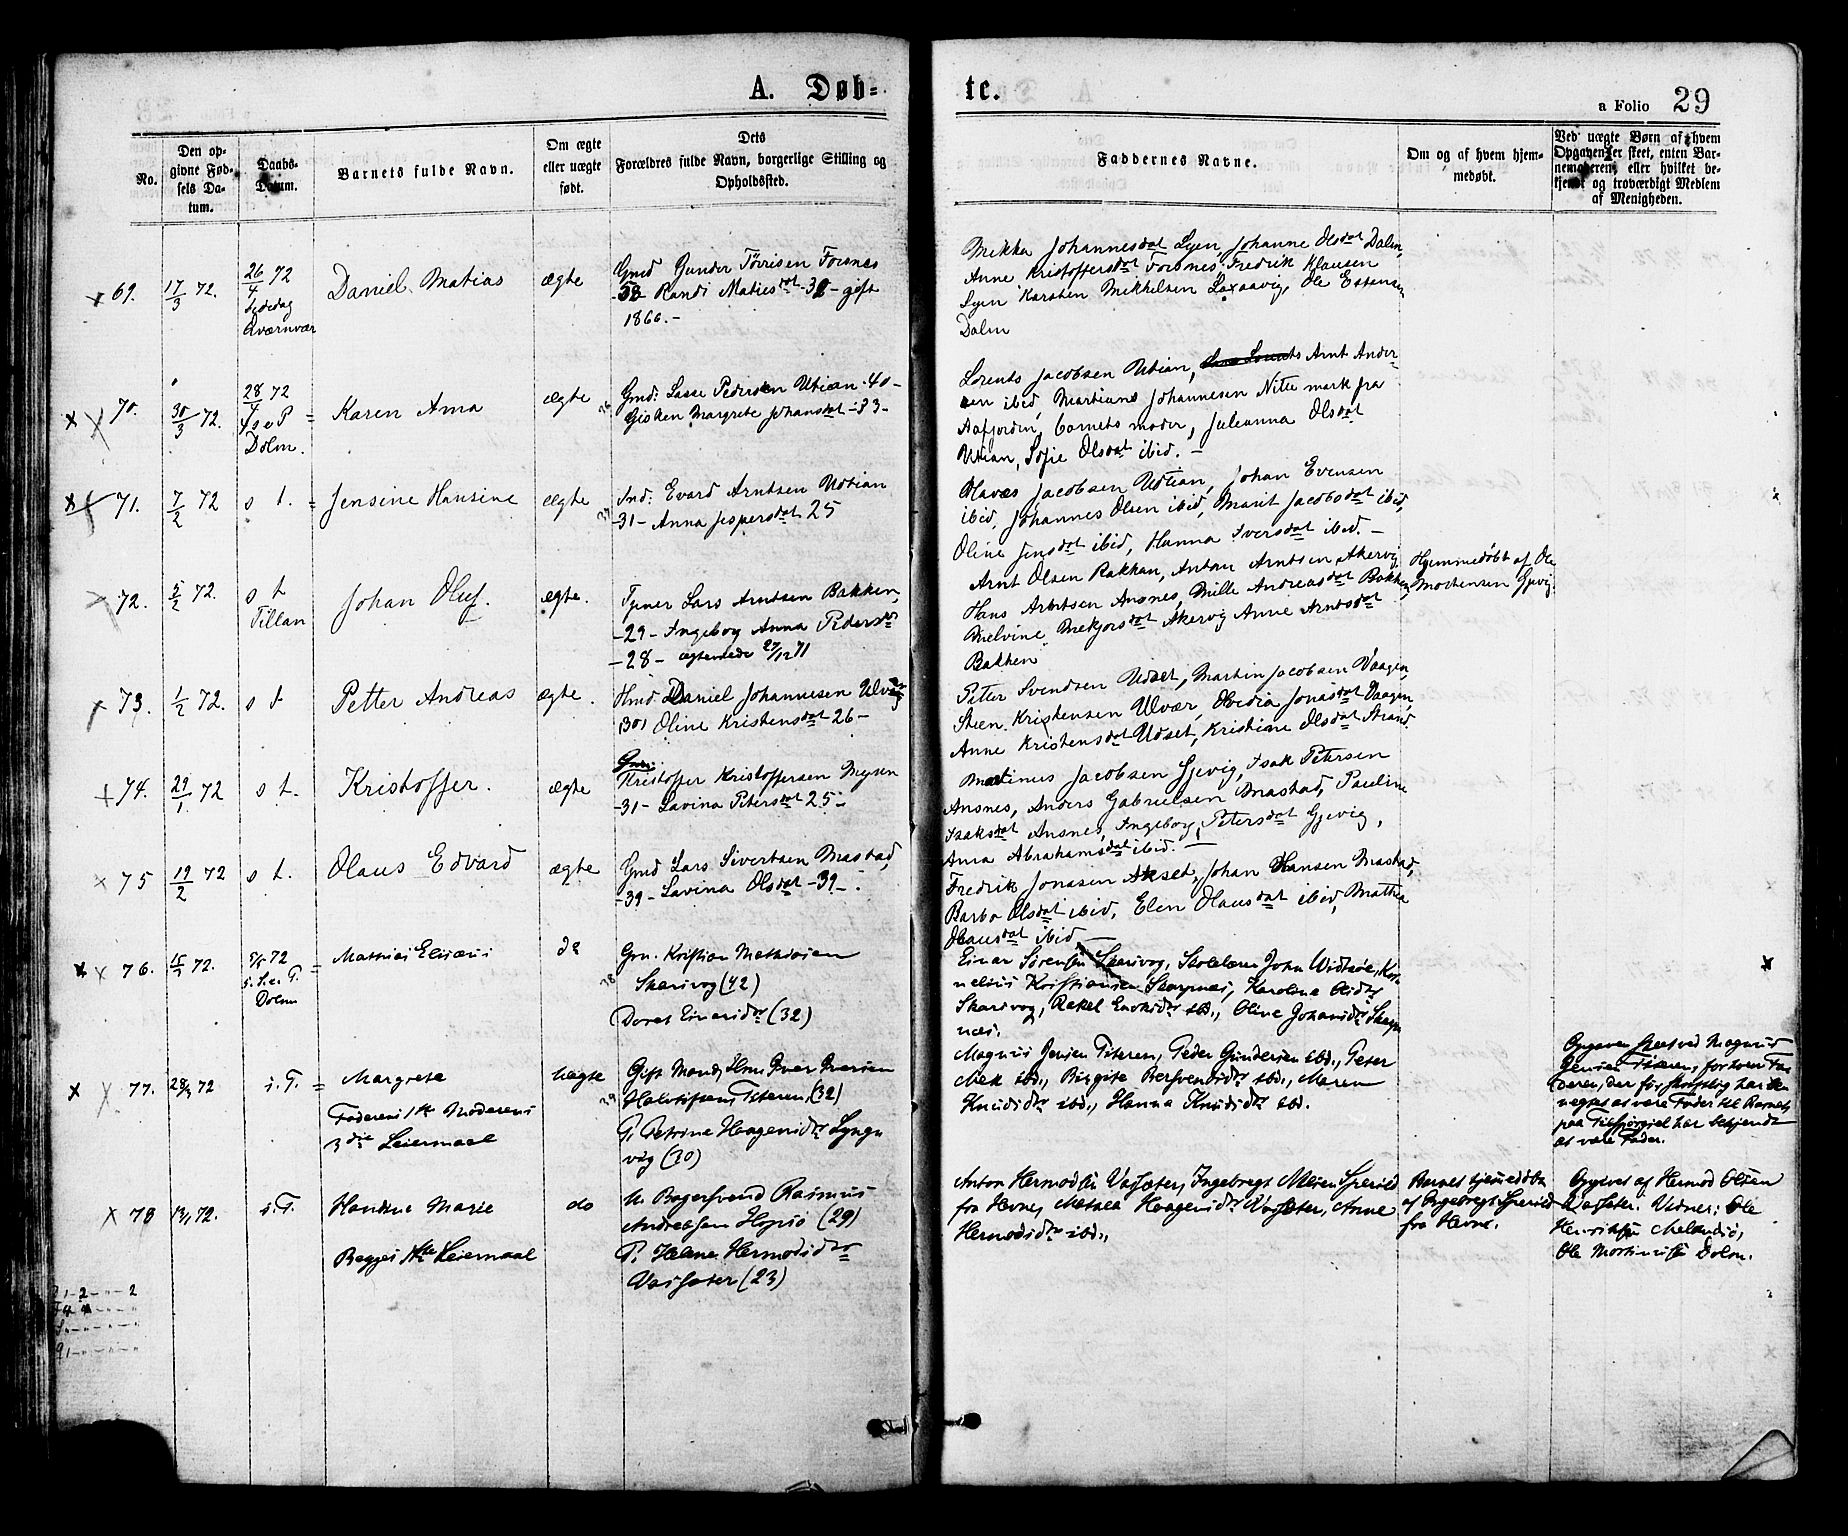 A. Døb=
te.
a Folio 29
No.
Den op-
givne Fød-
sels Da-
tum.
Daabs-
Datum.
Barnets fulde Navn.
Om ægte
eller uægte
født.
Dets
Forældres fulde Navn, borgerlige Stilling og
Opholdssted.
Faddernes Navne.
Om og af hvem hjem-
medøbt.
Ved uægte Børn af hvem
Opgaven er skeet, enten Bar-
nemoderen, eller hvilket be-
kjendt og troværdigt Medlem
af Menigheden.
69.
17/3 72.
26/4 72
Qværnvær
Daniel Matias
ægte
Gmd Gunder Tørrisen Forsnes
Randi Matiesdat - gift
1860.-
Mikka Johannesdat Lyen Johanne Olsdat Dolm,
Anne Kristoffersdat Forsnes, Fredrik Klausen
Lyen Karsten Mikkelsen Laxaavig, Ole Estensen
Dolm
70.
30/3 72.
28/4 72
4 s e P
Dolm.
Karen Anna
ægte
Gmd: Lasse Pedersen Utian -40-
Gisken Margrete Johansdat -33-
Lorents Jacobsen Utian, Arnt Ander-
sen ibid, Martiane Johannesen Nittemark fra
Aafjorden, barnets moder, Juleanna Olsdat
Utian, Sofie Olsdat ibid. -
71.
7/2 72
s t. =
Jensine Hansine
ægte
Ind: Evard Arntsen Udtian
-31- Anna Jespersdat 25
Olavæs Jacobsen Udtian, Johan Evensen
ibid, Johannes Olsen ibid, Marit Jacobsdat ibid,
Oline Jensdat ibid, Hanna Iversdat ibid. -
72.
5/2 72.
s t
Tillan
Johan Oluf.
ægte.
Tjener Lars Arntsen Bakken,
-29- Ingebog Anna Pedersdt
-28- ægteviede 27/12 71
Arnt Olsen Bakkan, Anton Arntsen Akervig
Hans Arntsen Ansnes, Mille Andreasdat Bakken,
Melvine Mekjorsdat Akervig Anne Arntsdat
Bakken
Hjemmedøbt af Ole
Mortensen Gjevig.
73.
1/2 72.
s t
Petter Andreas
ægte.
Hmd Daniel Johannesen Ulvær
(30) Oline Kristensdat 26-
Petter Svendsen Udset, Martin Jacobsen Vaagen,
Steen Kristensen Ulvær, Ovedia Jonasdat Vaagen,
Anne Kristensdat Udset, Kristine Olsdat Strand.
74.
29/1 72
s t.
Kristoffer.
ægte
Gmd.
Kristoffer Kristoffersen Mysen
-31- Lavina Petersdat 25-
Martinus Jacobsen Gjevig, Isak Petersen
Ansnes, Anders Gabrielsen Mastad, Pauline
Isaksdat Ansnes, Ingebog Petersdat Gjevig,
Anna Abrahamsdat ibid. -
75
19/2 72
s t.
Olaus Edvard
ægte
Gmd Lars Sivertsen Mastad,
-39- Lavina Olsdat -39-
Fredrik Jonasen Akset, Johan Hansen Mastad,
Barbo Olsdat ibid, Elen Olausdat ibid, Mattha
Olausdat ibid -
76.
5/5 72
Dolm
Mathias Elisæus
do
Grn. Kristian Mathiasen
Skarsvog (42)
Doret Einarsdtr (32)
Einar Sørensen Skarsvog, Skolelærer John Widtsøe, Kor-
nelius Kristiansen Skarpnæs, Karolina
Skarsvog, Rakel Enoksdtr ibd., Oline Johansdtr Skarp
næs.
77.
28/3 72
s.T. =
Margrete
Faderens 1ste Moderens
3die Leiermaal
Uægte
Gift Mand, Hmd. Iver Iversen
Titeren, (32)
P. Petrine Haagensdtr Lyngn
vær (30)
Magnus Jensen Titeren, Peder Gundersen ibd., Peter
Mek ibd., Birgite Berfvendsdtr ibd., Maren
Knudsdtr ibd., Hanna Knudsdtr ibd.
Opgaven skeet ved Magnus
Jensen Titeren, forsaavidt Fa-
deren, der før skriftlig har be-
negtet at være Fader til Barnet,
paa Tilspørgsel har bekjendt
at være Fader.
78
72.
s.T.
Handine Marie
Begges 1ste Leiermaal
do
U. Bagersvend Rasmus
Andreassen Hopsø (29)
P. Helena Hermodsdtr
Vassæter (23)
Anton Hermodsen Vassæter, Ingebregt Olsen Sperild
fra Hevne, Mattea Haagensdtr Vassæter, Anne
Hermodsdtr ibd.,
Barnet hjemmedøbt
af Ingebregt Sperild
fra Hevne.
Opgivet af Hermod Olsen
Vassæter. Vidner: Ole
Henriksen Melandsø,
Ole Martinusen Dolm.